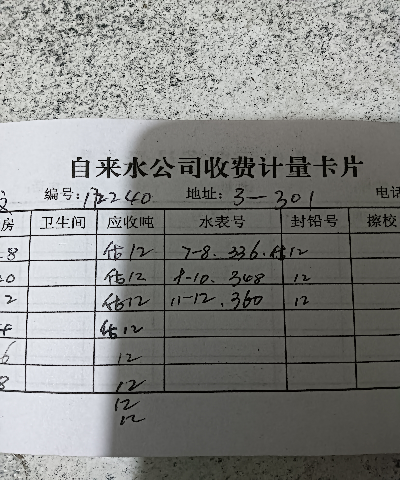 自来水公司收费计量卡片
编号: 12240 地址: 3-301 电话
房 卫生间 应收吨 水表号 封铅号 擦校
8 估12 7-8. 336. 估12
20 估12 9-10. 348 12
2 估12 11-12. 360 12
4 估12
6 12
8 12
12
12